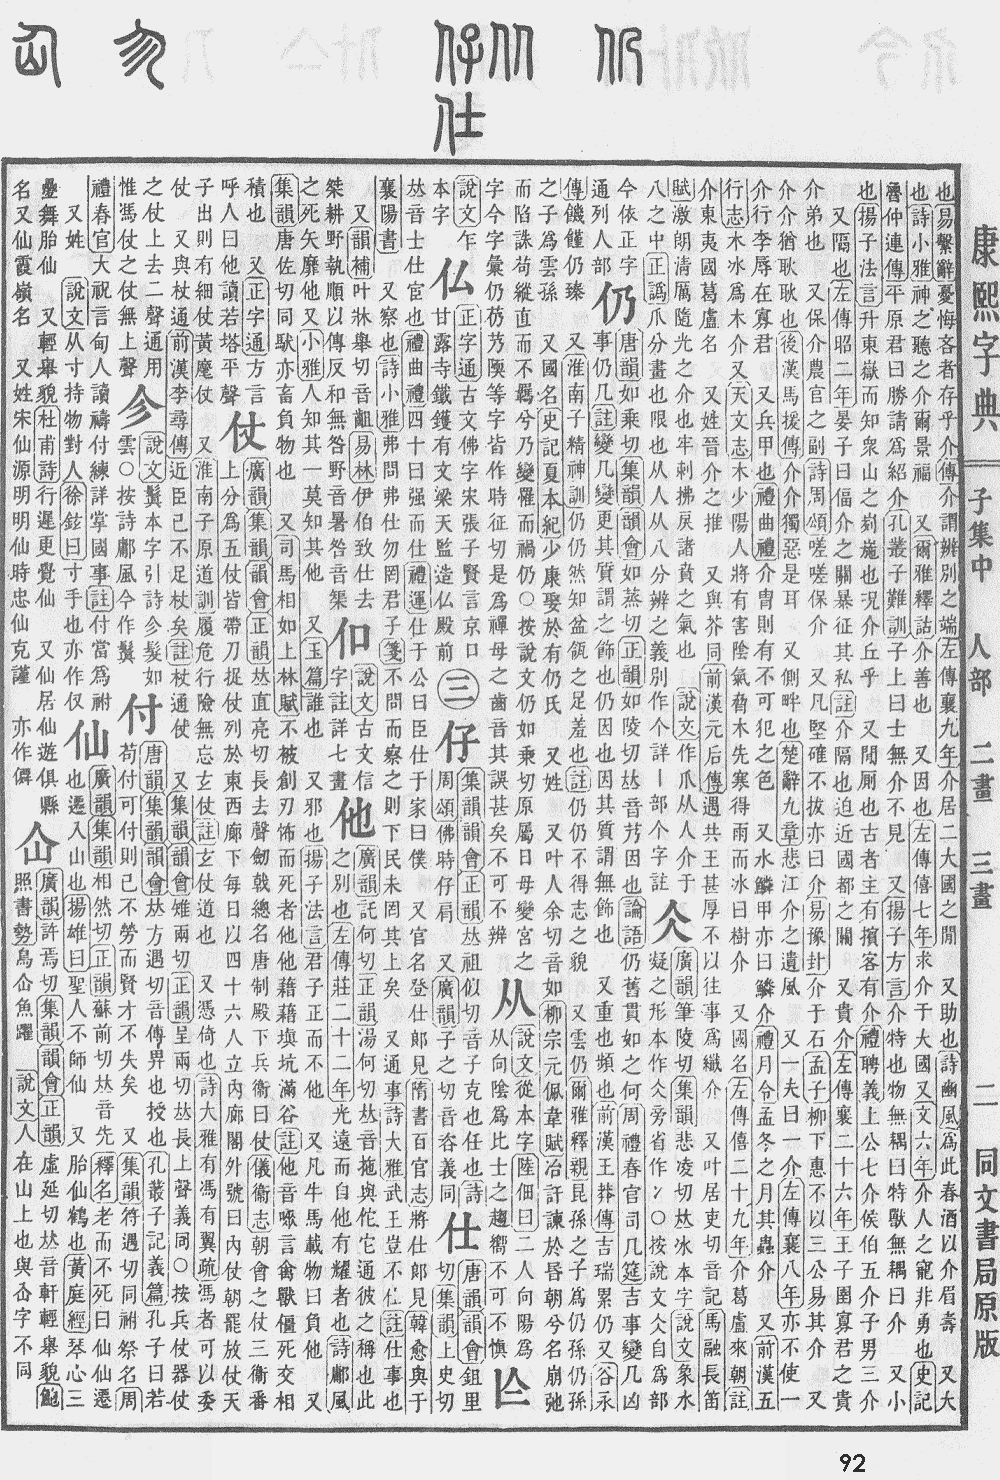 康熙字典
子集中 人部 二畫 三畫 二 同文書局原版
也易繫辭憂悔吝者存乎介傳介謂辨別之端左傳襄九年介居二大國之閒 又助也詩豳風爲此春酒以介眉壽 又大
也詩小雅神之聽之介爾景福 又爾雅釋詁介善也 又因也左傳僖七年求介于大國又文六年介人之寵非勇也史記
魯仲連傳平原君曰勝請爲紹介孔叢子雜訓子上曰士無介不見 又揚子方言介特也物無耦曰特獸無耦曰介 又小
也揚子法言升東嶽而知衆山之峛崺也况介丘乎 又閒厠也古者主有擯客有介禮聘義上公七介侯伯五介子男三介
又隔也左傳昭二年晏子曰偪介之關暴征其私註介隔也迫近國都之關 又貴介左傳襄二十六年王子圍寡君之貴
介弟也 又保介農官之副詩周頌嗟嗟保介 又凡堅確不拔亦曰介易豫卦介于石孟子柳下惠不以三公易其介 又
介介猶耿耿也後漢馬援傳介介獨惡是耳 又側畔也楚辭九章悲江介之遺風 又一夫曰一介左傳襄八年亦不使一
介行李辱在寡君 又兵甲也禮曲禮介冑則有不可犯之色 又水鱗甲亦曰鱗介禮月令孟冬之月其蟲介 又前漢五
行志木冰爲木介又天文志木少陽人將有害陰氣脅木先寒得雨而冰曰樹介 又國名左傳僖二十九年介葛盧來朝註
介東夷國葛盧名 又姓晉介之推 又與芥同前漢元后傳遇共王甚厚不以往事爲纖介 又叶居吏切音記馬融長笛
賦激朗清厲隨光之介也牢剌拂戾諸賁之氣也 說文作爪从人介于 仌 廣韻筆陵切集韻悲凌切𠀤冰本字說文象水
八之中正譌爪分畫也限也从人从八分辨之義別作个詳丨部个字註 凝之形本作仌旁省作冫○按說文仌自爲部
今依正字通列人部 仍 唐韻如乘切集韻韻會如蒸切正韻如陵切𠀤音艿因也論語仍舊貫如之何周禮春官司几筵吉事變几凶
事仍几註變几變更其質謂之飾也仍因也因其質謂無飾也 又重也頻也前漢王莽傳吉瑞累仍又谷永
傳饑饉仍臻 又淮南子精神訓仍仍然知盆瓴之足羞也註仍仍不得志之貌 又雲仍爾雅釋親昆孫之子爲仍孫仍孫
之子爲雲孫 又國名史記夏本紀少康娶於有仍氏 又姓 又叶人余切音如柳宗元佩韋賦冶訐諫於昏朝兮名崩弛
而陷誅苟縱直而不羈兮乃變罹而禍仍○按說文仍如乘切原屬日母變宮之 从 說文從本字陸佃曰二人向陽爲
字今字彙仍艿芿陾等字皆作時征切是爲禪母之齒音其誤甚矣不可不辨 从向陰爲比士之趨嚮不可不愼 亾
說文亡本字 仏 正字通古文佛字宋張子賢言京口甘露寺鐵鑊有文梁天監造仏殿前 三 仔 集韻韻會正韻𠀤祖似切音子克也任也詩周頌佛時仔肩 又廣韻子之切音咨義同 仕 唐韻韻會鉏里切集韻上史切
𠀤音士仕宦也禮曲禮四十曰强而仕禮運仕于公曰臣仕于家曰僕 又官名登仕郎見隋書百官志將仕郎見韓愈與于
襄陽書 又察也詩小雅弗問弗仕勿罔君子箋不問而察之則下民未罔其上矣 又通事詩大雅武王豈不仕註仕事也
又韻補叶牀舉切音齟易林伊伯致仕去桀耕野執順以傳反和無咎野音暑咎音榘 㐰 說文古文信字註詳七畫 他 廣韻託何切正韻湯何切𠀤音拖與佗它通彼之稱也此之別也左傳莊二十二年光遠而自他有耀者也詩鄘風
之死矢靡他又小雅人知其一莫知其他 又玉篇誰也 又邪也揚子法言君子正而不他 又凡牛馬載物曰負他 又
集韻唐佐切同馱亦畜負物也 又司馬相如上林賦不被創刃怖而死者他他藉藉塡坑滿谷註他音㗄言禽獸僵死交相
積也 又正字通方言呼人曰他讀若塔平聲 仗 廣韻集韻韻會正韻𠀤直亮切長去聲劒戟總名唐制殿下兵衞曰仗儀衞志朝會之仗三衞番
上分爲五仗皆帶刀捉仗列於東西廊下每日以四十六人立內廊閣外號曰內仗朝罷放仗天
子出則有細仗黃麾仗 又淮南子原道訓履危行險無忘玄仗註玄仗道也 又憑倚也詩大雅有馮有翼疏馮者可以委
仗 又與杖通前漢李尋傳近臣已不足杖矣註杖通仗 又集韻韻會雉兩切正韻呈兩切𠀤長上聲義同○按兵仗器仗
之仗上去二聲通用惟馮仗之仗無上聲 㐱 說文鬒本字引詩㐱髮如雲○按詩鄘風今作鬒 付 唐韻集韻韻會𠀤方遇切音傅畀也授也孔叢子記義篇孔子曰若
苟付可付則已不勞而賢才不失矣 又集韻符遇切同祔祭名周
禮春官大祝言甸人讀禱付練詳掌國事註付當爲祔 又姓 說文从寸持物對人徐鉉曰寸手也亦作仅 仙 廣韻集韻相然切正韻蘇前切𠀤音先釋名老而不死曰仙仙遷
也遷入山也揚雄曰聖人不師仙 又胎仙鶴也黃庭經琴心三
疊舞胎仙 又輕舉貌杜甫詩行遲更覺仙 又仙居仙遊俱縣名又仙霞嶺名 又姓宋仙源明明仙時忠仙克謹 亦作僊 仚 廣韻許焉切集韻韻會正韻虛延切𠀤音軒輕舉貌鮑
照書勢鳥仚魚躍 說文人在山上也與屳字不同
92